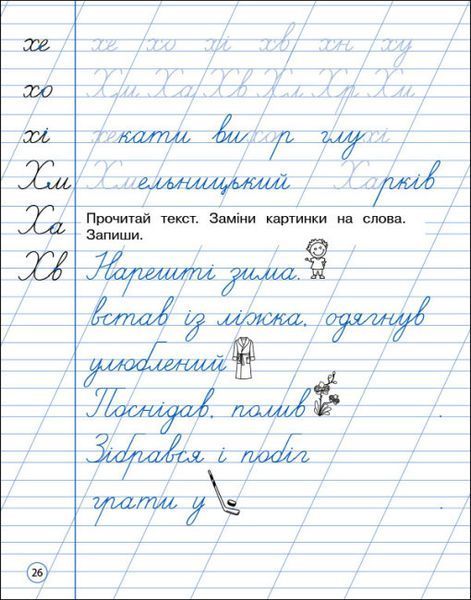 хе хе хо хі хв хн ху
хо Хм Ха Хв Хл Хр Хи
хі хекати вихор глухі
Хм Хмельницький Харків
Ха Прочитай текст. Заміни картинки на слова.
Запиши.
Хв Нарешті зима.
встав із ліжка, одягнув
улюблений
Поснідав, полив .
Зібрався і побіг
грати у .
26